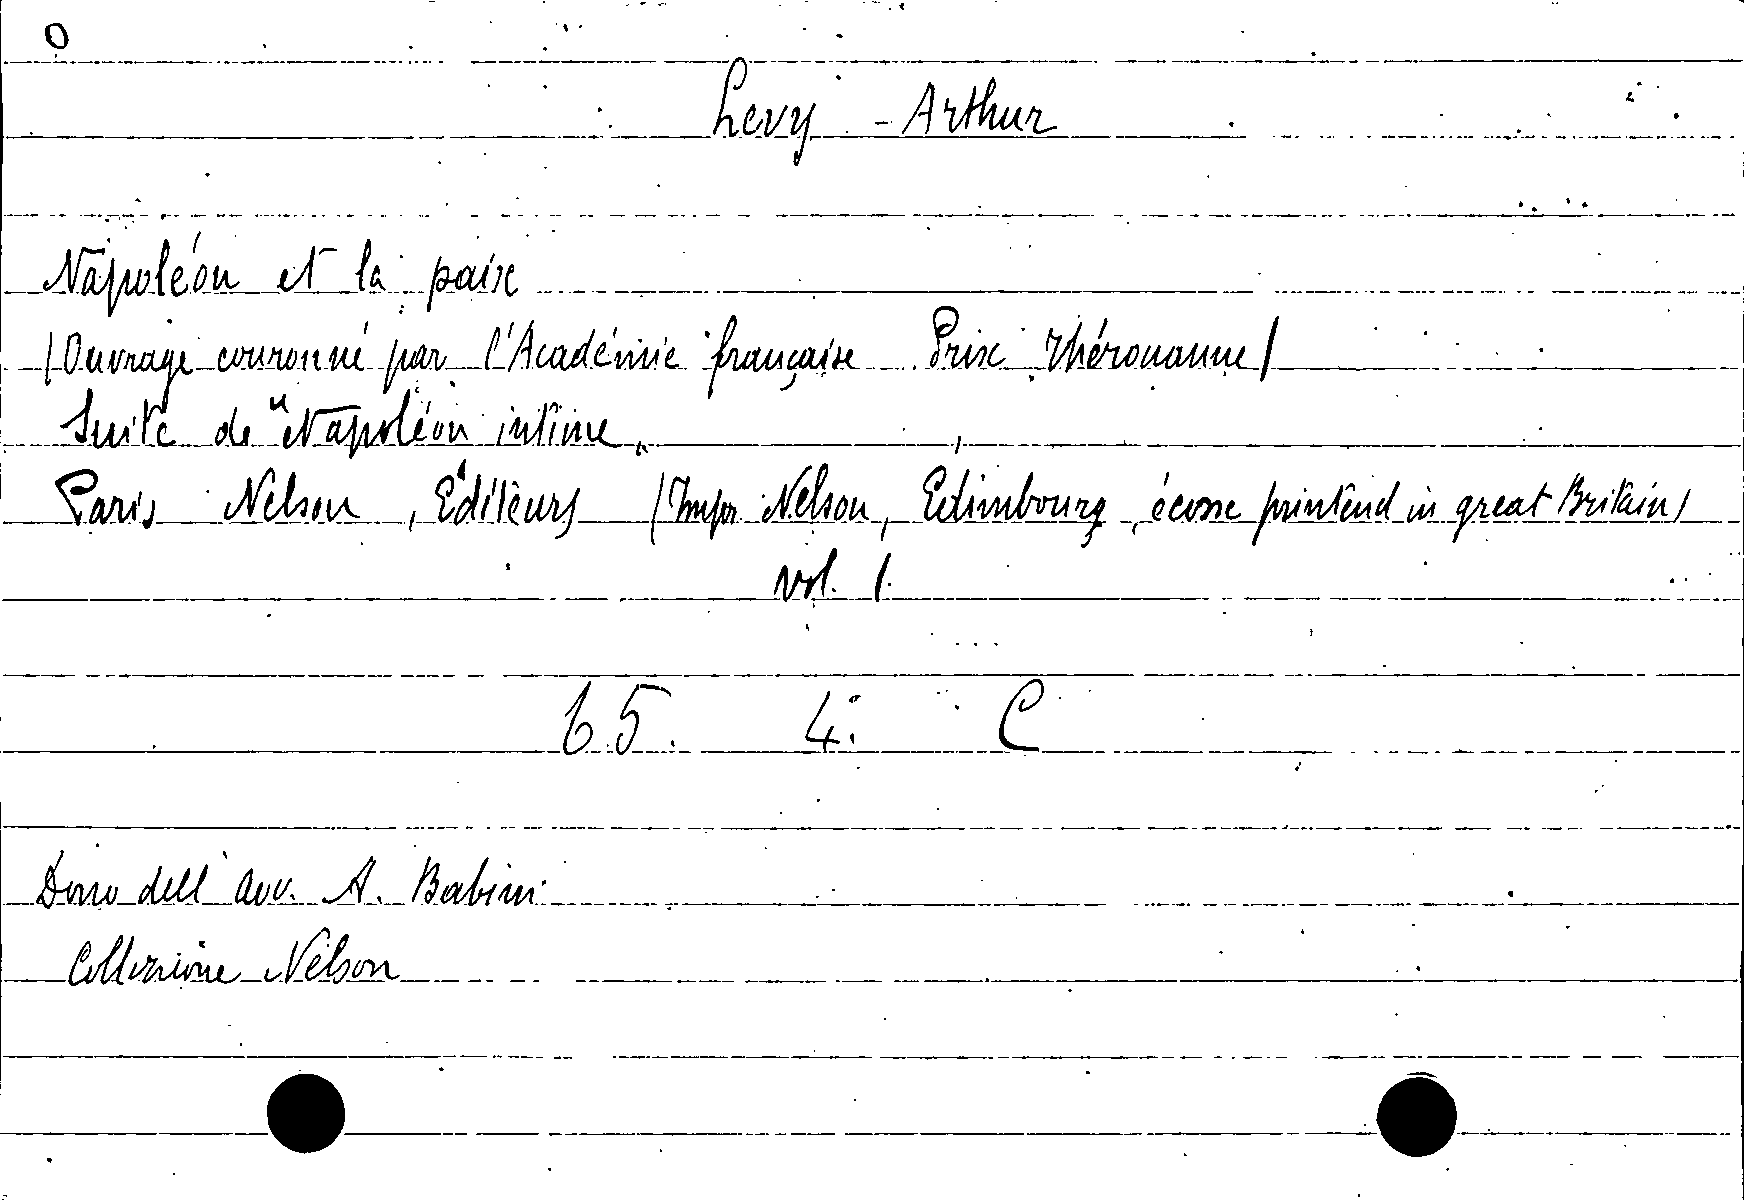 0
Levy - Arthur
Napoléon et la paix
(Ouvrage couronné par l'Académie française Prix Thérouanne)
Suite de "Napoléon intime„
Paris Nelson, Editeurs (Impr. Nelson, Edimbourg, écosse printend in great Britain)
vol. 1.
65. 4. C
Dono dell'avv. A. Babini
Collezione Nelson